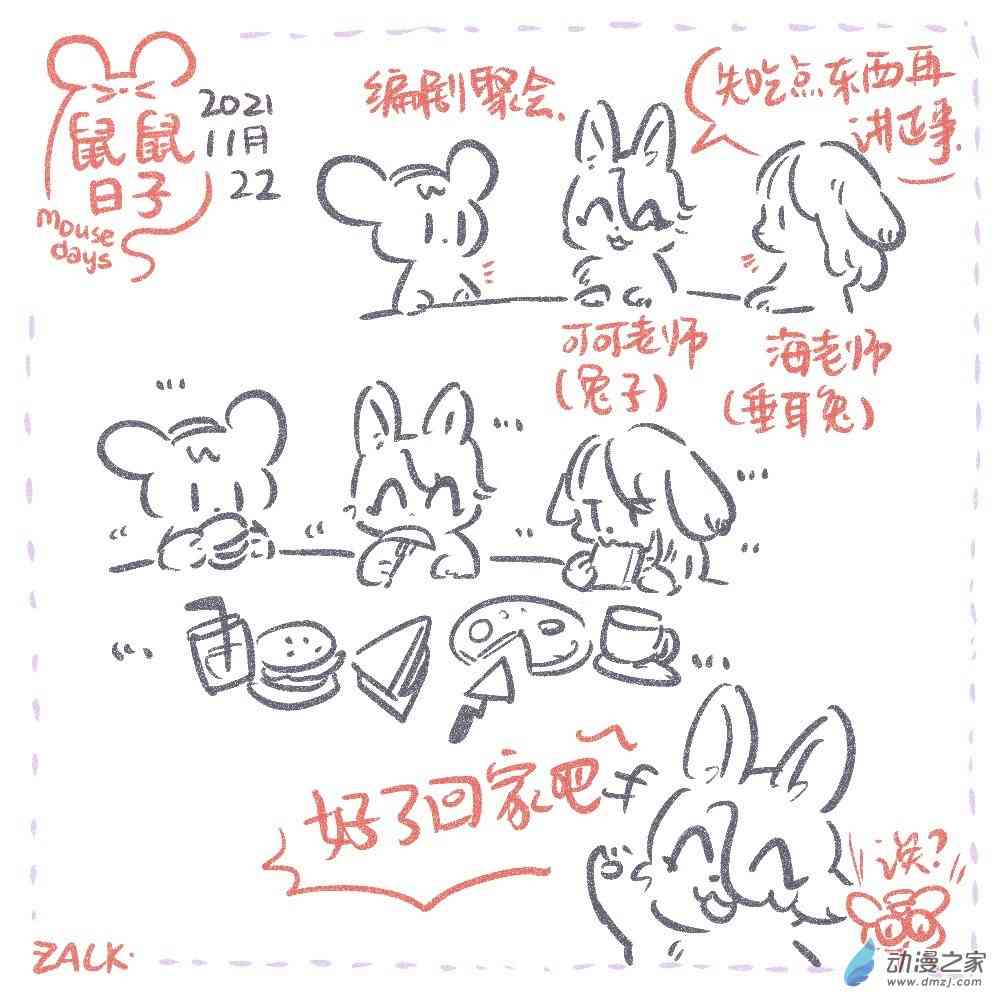 鼠鼠
日子
mouse
days
2021
11月
22
编剧聚会.
先吃点东西再
讲正事.
可可老师
(兔子)
海老师
(垂耳兔)
好了回家吧~
诶?
ZALK.
动漫之家
www.dmzj.com